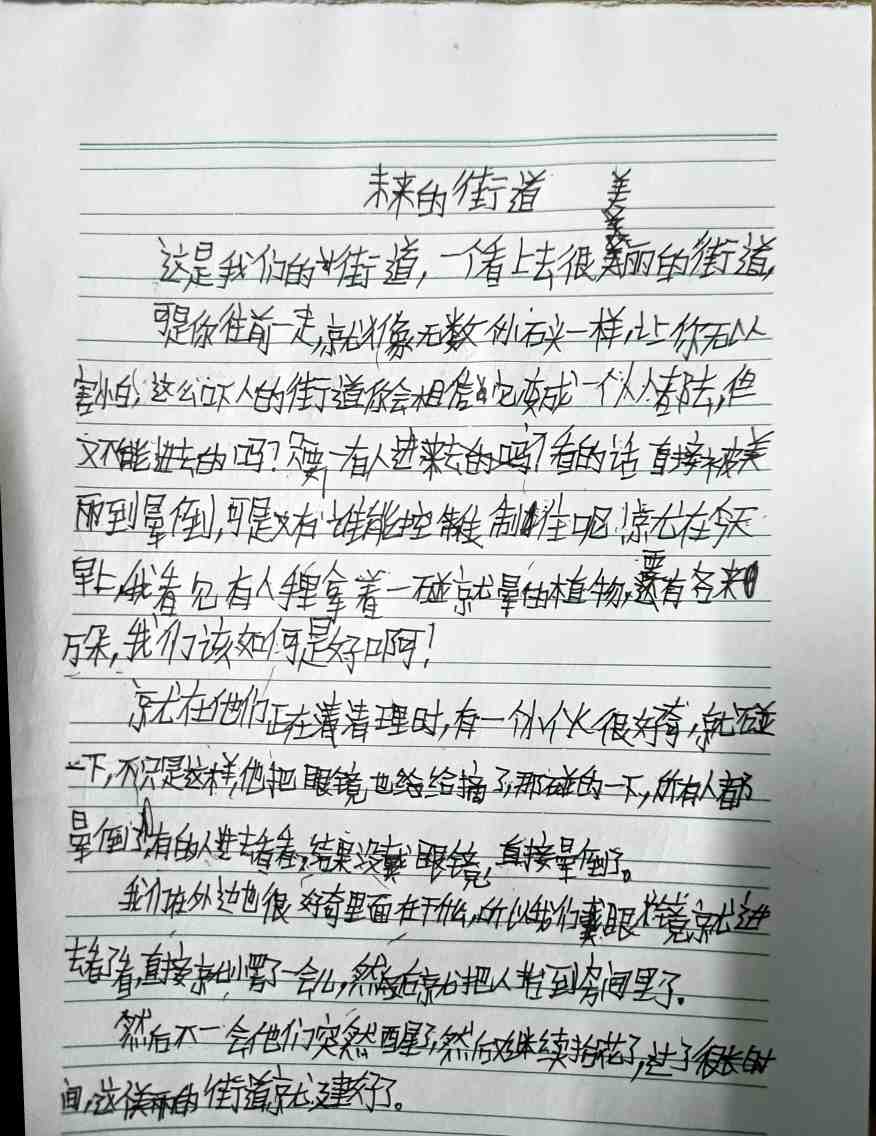 未来的街道
美
这是我们的街道,一个看上去很美丽的街道,
可是你往前一走,就像无数小石头一样,让你无以
害怕,这么吓人的街道你会相信它变成一个人人都去,但
又不能进去的吗?只要一有人进来去的吗?看的话直接被美
丽到晕倒,可是又有谁能控制住呢!就在今天
早上,我看见有人手里拿着一碰就晕的植物,要还有各来
万朵,我们该如何是好啊!
就在他们正在清理时,有一个人很好奇,就碰
一下,不只是这样,他把眼镜也给给摘了,那碰的一下,所有人都
晕倒了,有的人进去看看,结果没戴眼镜,直接晕倒了。
我们在外边也很好奇里面在干什么,所以我们戴眼镜就进
去看了看,直接就愣了一会儿,然后就把人抬到房间里了。
然后不一会他们突然醒了,然后继续拾花了,过了很长时
间,这美丽的街道就建好了。